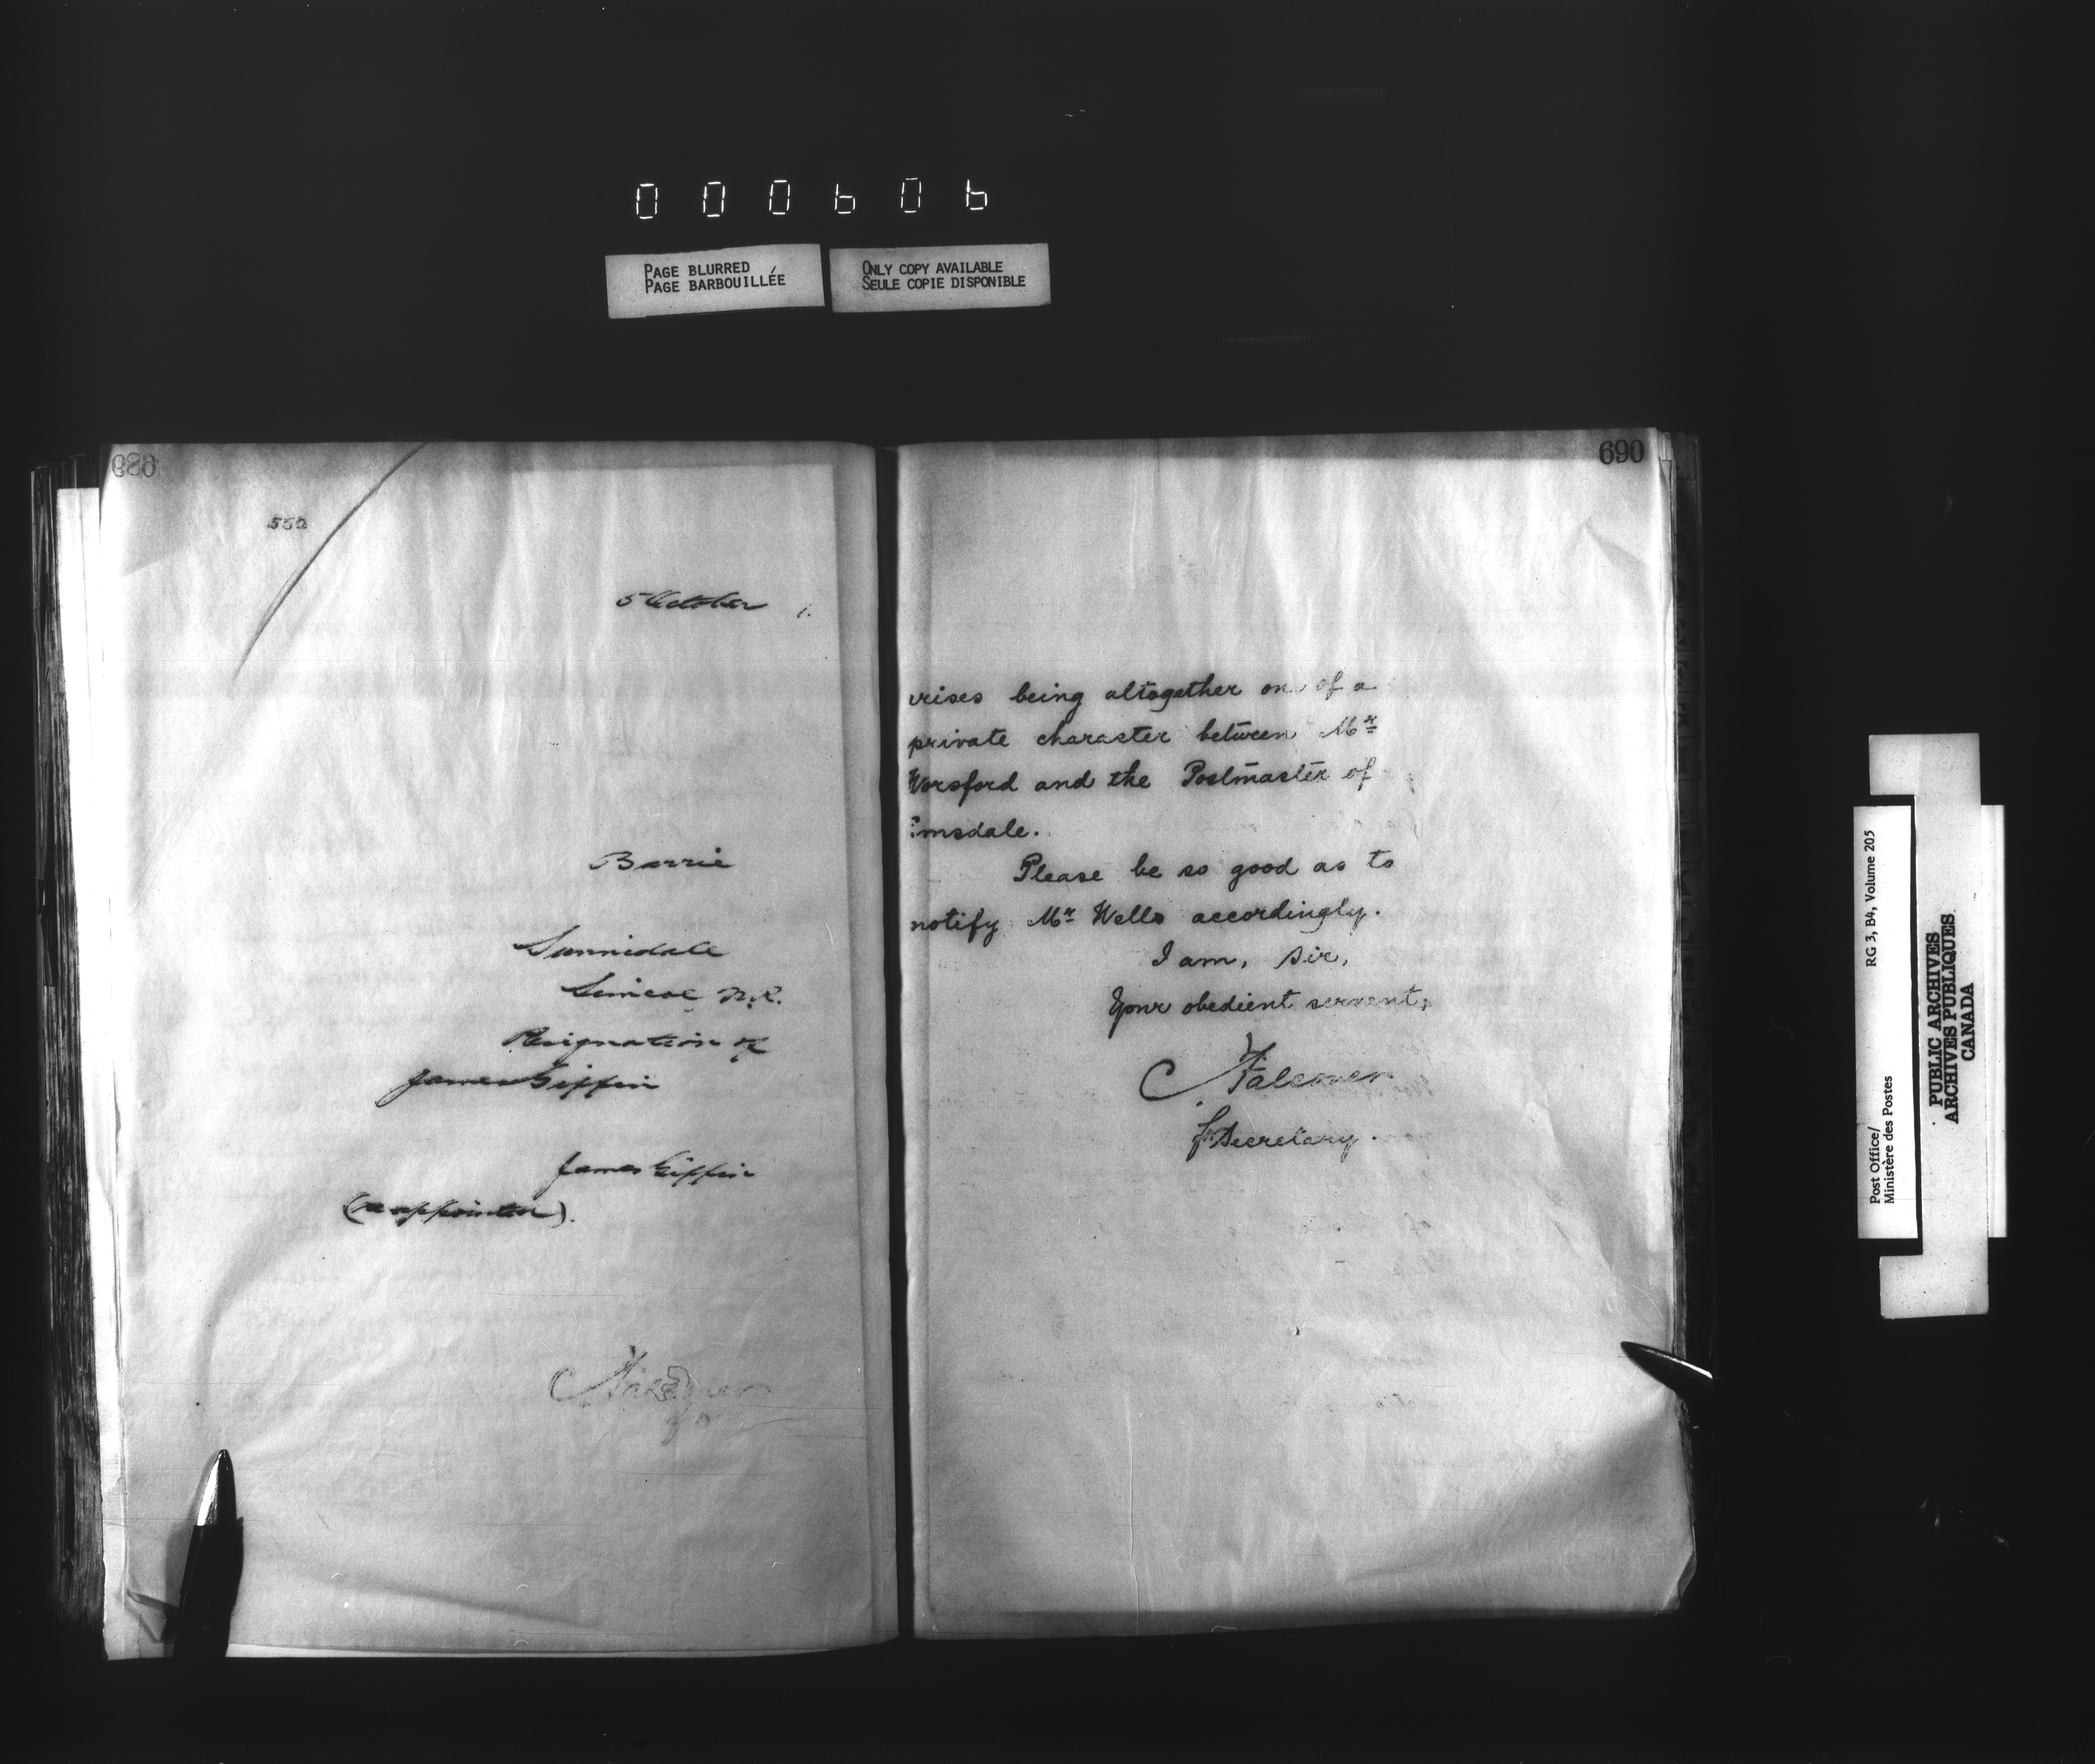 000606
PAGE BLURRED
PAGE BARBOUILLÉE
ONLY COPY AVAILABLE
SEULE COPIE DISPONIBLE
689
552
5 October 1.
Barrie
Sunnidale
Simcoe N.R.
Resignation of
James Giffin
James Giffin
(reappointed).
690
rises being altogether one of a
private character between Mr
Worsford and the Postmaster of
imsdale.
Please be so good as to
notify Mr Wells accordingly.
I am, Sir,
Your obedient servant,
Falconer
for Secretary.
Post Office/
Ministère des Postes
RG 3, B4, Volume 205
PUBLIC ARCHIVES
ARCHIVES PUBLIQUES
CANADA